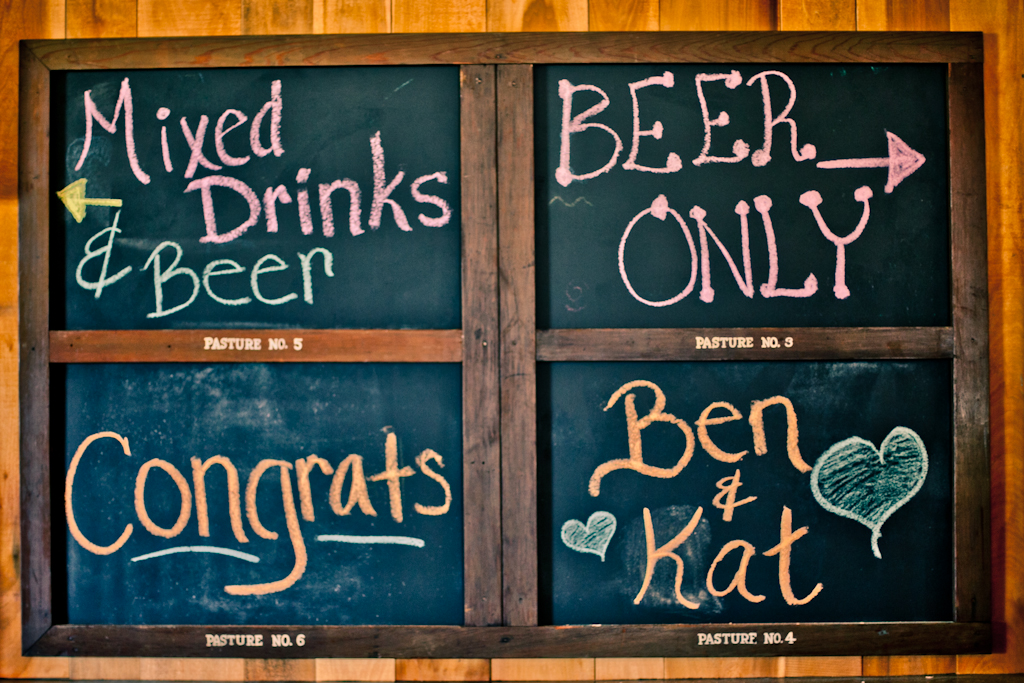 Mixed
Drinks
& Beer
PASTURE NO. 5
BEER
ONLY
PASTURE NO. 3
Congrats
PASTURE NO. 6
Ben
&
Kat
PASTURE NO. 4